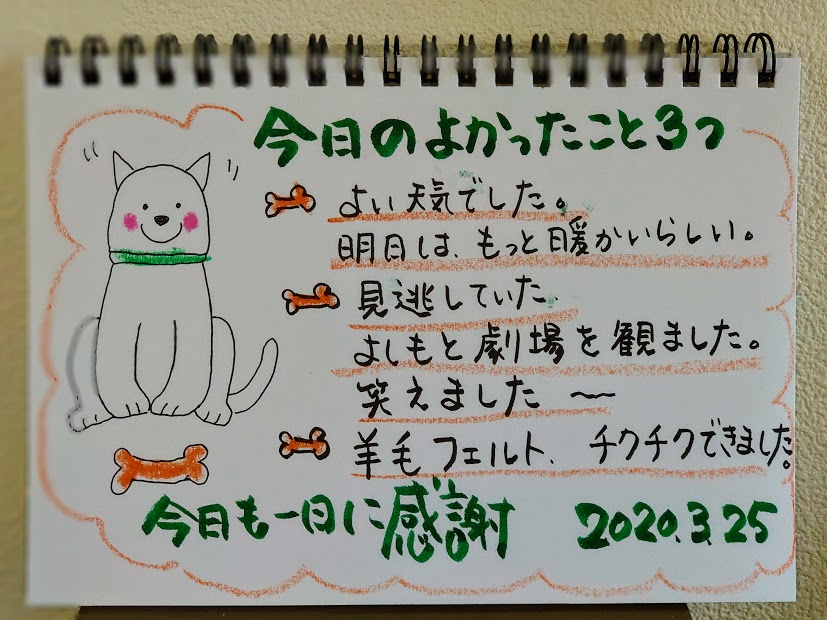 今日のよかったこと3つ
よい天気でした。
明日は、もっと暖かいらしい。
見逃していた
よしもと劇場を観ました。
笑えました〜
羊毛フェルト、チクチクできました。
今日も一日に感謝 2020.3.25